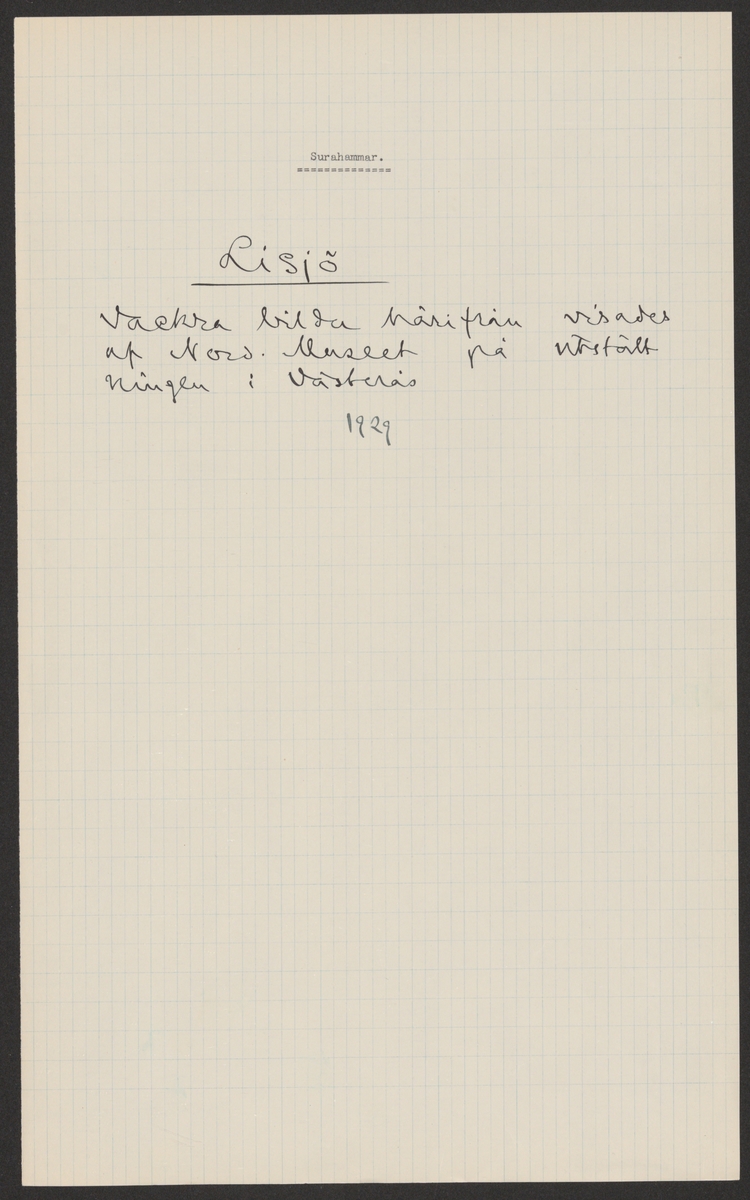 Surahammar.
==============
Lisjö
Vackra bilda härifrån visades
af Nord. Museet på utställ
ningen i Västerås
1929